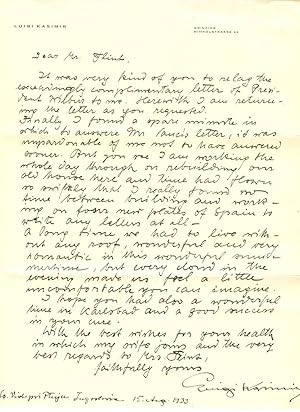 LUIGI KASIMIR
GRINZING
HIMMELSTRASSE
Dear Mr. Flint,
It was very kind of you to relay the
exceedingly complimentary letter of Presi-
dent Wilbur to me. Herewith I am return-
ing the letter as you requested.
Finally I found a spare minute in
which to answer Mr. letter, it was
unpardonable of me not to have answered
sooner. But you see I am working the
whole day through on rebuilding our
old house here and time had flown
so swiftly that I really found no
time between building and work-
ing on four new plates of Spain to
write any letters at all.
A long time we had to live with-
out any roof, wonderful and very
romantic in this wonderful
but every cloud in the
evening made us feel a little
uncomfortable you can imagine.
I hope you had also a wonderful
time in Karlsbad and a good success
in your cure.
With the best wishes for your health
in which my wife joins and the very
best regards to Mrs. Flint,
faithfully yours
Luigi Kasimir
15. Aug. 1933